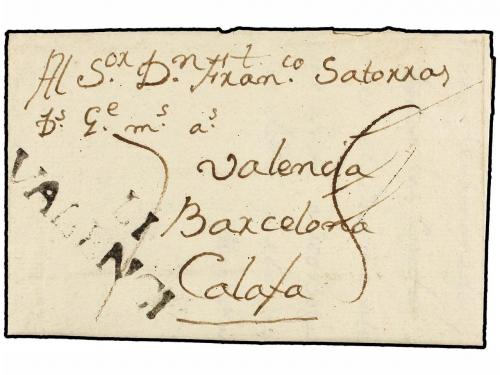 Al S.or D.n Fran.co Satorras
D.s G.e m.s a.s
Valencia
Barcelona
Calafa
LI
VALENCI